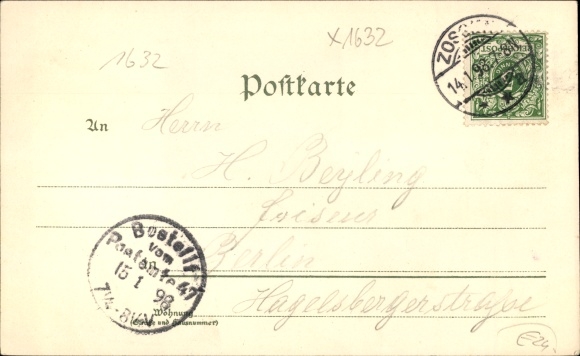 1632
x1632
ZOSSEN
14.1.98
REICHSPOST
Postkarte
An
Herrn
H. Beyling
Berlin
Hagelsbergerstraße
Wohnung
(Straße und Hausnummer)
Bestellt
vom
Postamte 47
15 1 98
7¼-8¼V
E24